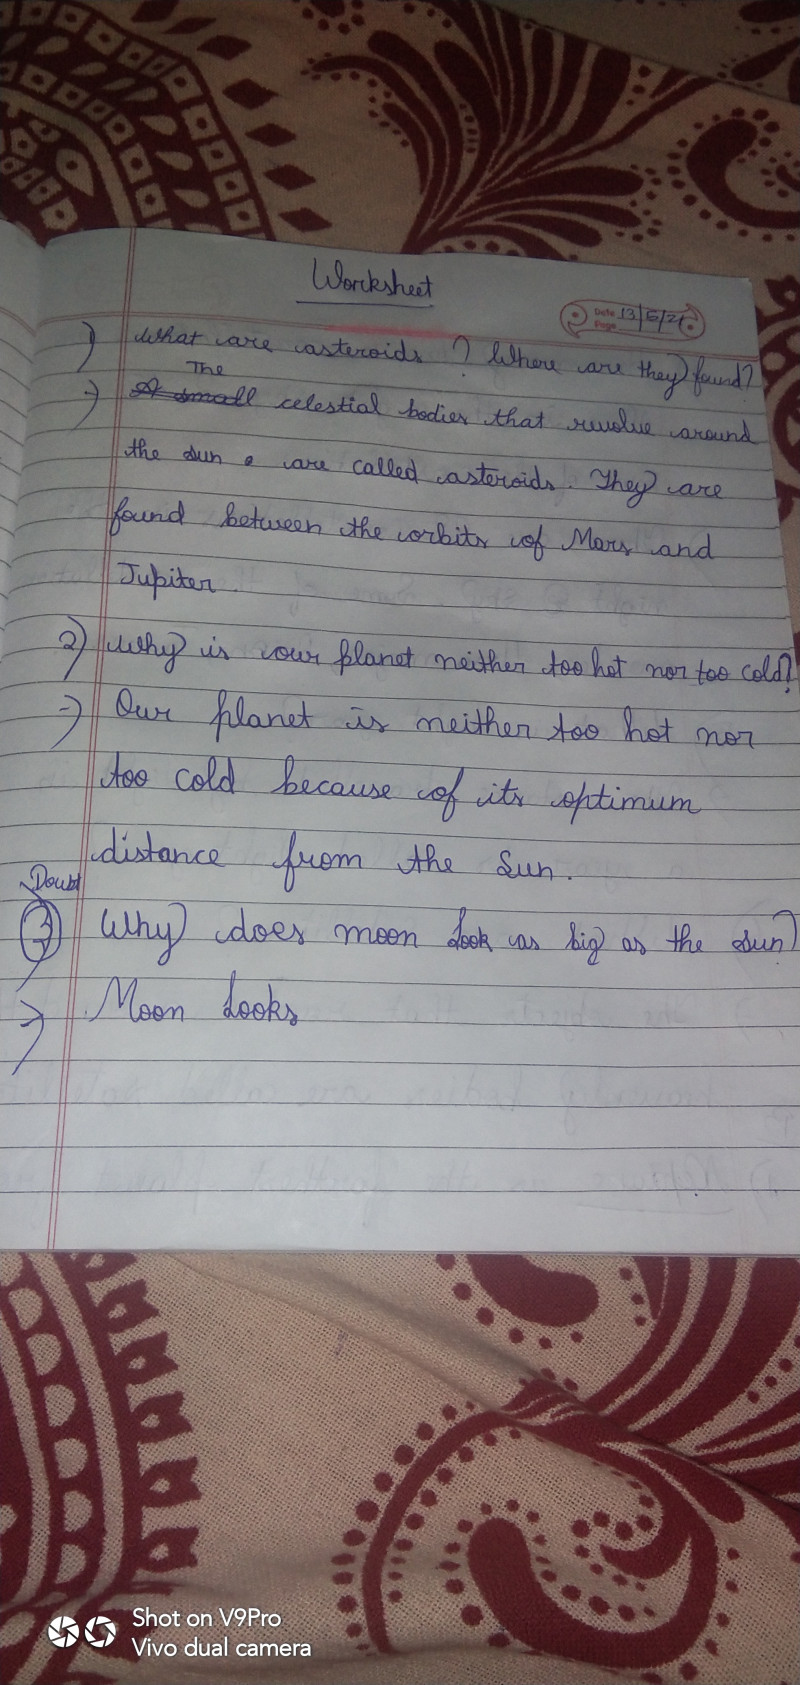 Worksheet
Date 13/5/21
Page
1) What are asteroids ? Where are they found?
The
→ A small celestial bodies that revolve around
the sun are called asteroids. They are
found between the orbits of Mars and
Jupiter.
2) Why is our planet neither too hot nor too cold?
→ Our planet is neither too hot nor
too cold because of its optimum
distance from the Sun.
Doubt
3) Why does moon look as big as the sun?
→ Moon looks
Shot on V9Pro
Vivo dual camera